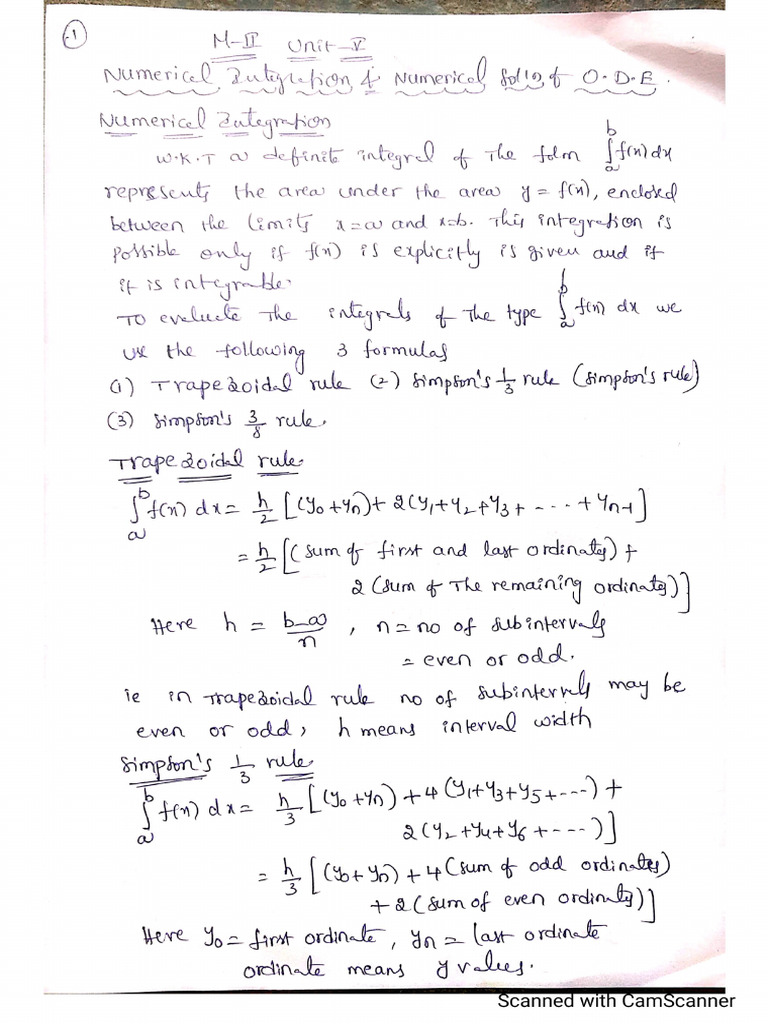 1
M-II Unit-V
Numerical Integration & Numerical Sol'ns of O.D.E.
Numerical Integration
W.K.T a definite integral of the form ∫ₐᵇ f(x) dx
represents the area under the area y = f(x), enclosed
between the limits x=a and x=b. This integration is
possible only if f(x) is explicitly is given and if
it is integrable.
To evaluate the integrals of the type ∫ₐᵇ f(x) dx we
use the following 3 formulas
(1) Trapezoidal rule (2) Simpson's 1/3 rule (Simpson's rule)
(3) Simpson's 3/8 rule.
Trapezoidal rule
∫ₐᵇ f(x) dx = h/2 [(y₀+yₙ) + 2(y₁+y₂+y₃+ --- + yₙ₋₁]
= h/2 [(sum of first and last ordinates) +
2 (sum of The remaining ordinates)]
Here h = b-a/n, n = no of subintervals
= even or odd.
ie in Trapezoidal rule no of subintervals may be
even or odd, h means interval width
Simpson's 1/3 rule
∫ₐᵇ f(x) dx = h/3 [(y₀+yₙ) + 4(y₁+y₃+y₅+---) +
2(y₂+y₄+y₆+---)]
= h/3 [(y₀+yₙ) + 4(sum of odd ordinates)
+ 2(sum of even ordinates)]
Here y₀ = first ordinate, yₙ = last ordinate
ordinate means y values.
Scanned with CamScanner